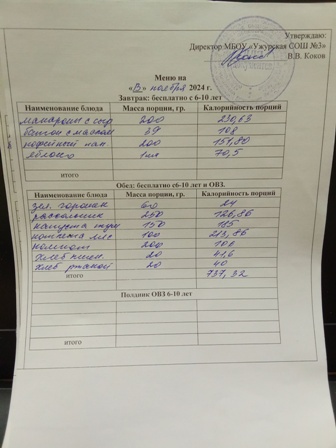 Утверждаю:
Директор МБОУ «Ужурская СОШ №3»
В.В. Коков
Меню на
« » ноября 2024 г.
Завтрак: бесплатно с 6-10 лет
Наименование блюда Масса порции, гр. Калорийность порций
макароны с сыр 200 230,63
батон с маслом 39 108
кофейный нап 200 151,80
яблоко 1шт 70,5
итого
Обед: бесплатно с6-10 лет и ОВЗ.
Наименование блюда Масса порции, гр. Калорийность порций
зел. горошек 60 24
рассольник 250 126,86
капуста туш 150 115
котлета мяс 100 213,86
компот 200
хлеб пшен. 20 41,6
хлеб ржаной 20 40
итого 737,32
Полдник ОВЗ 6-10 лет
итого